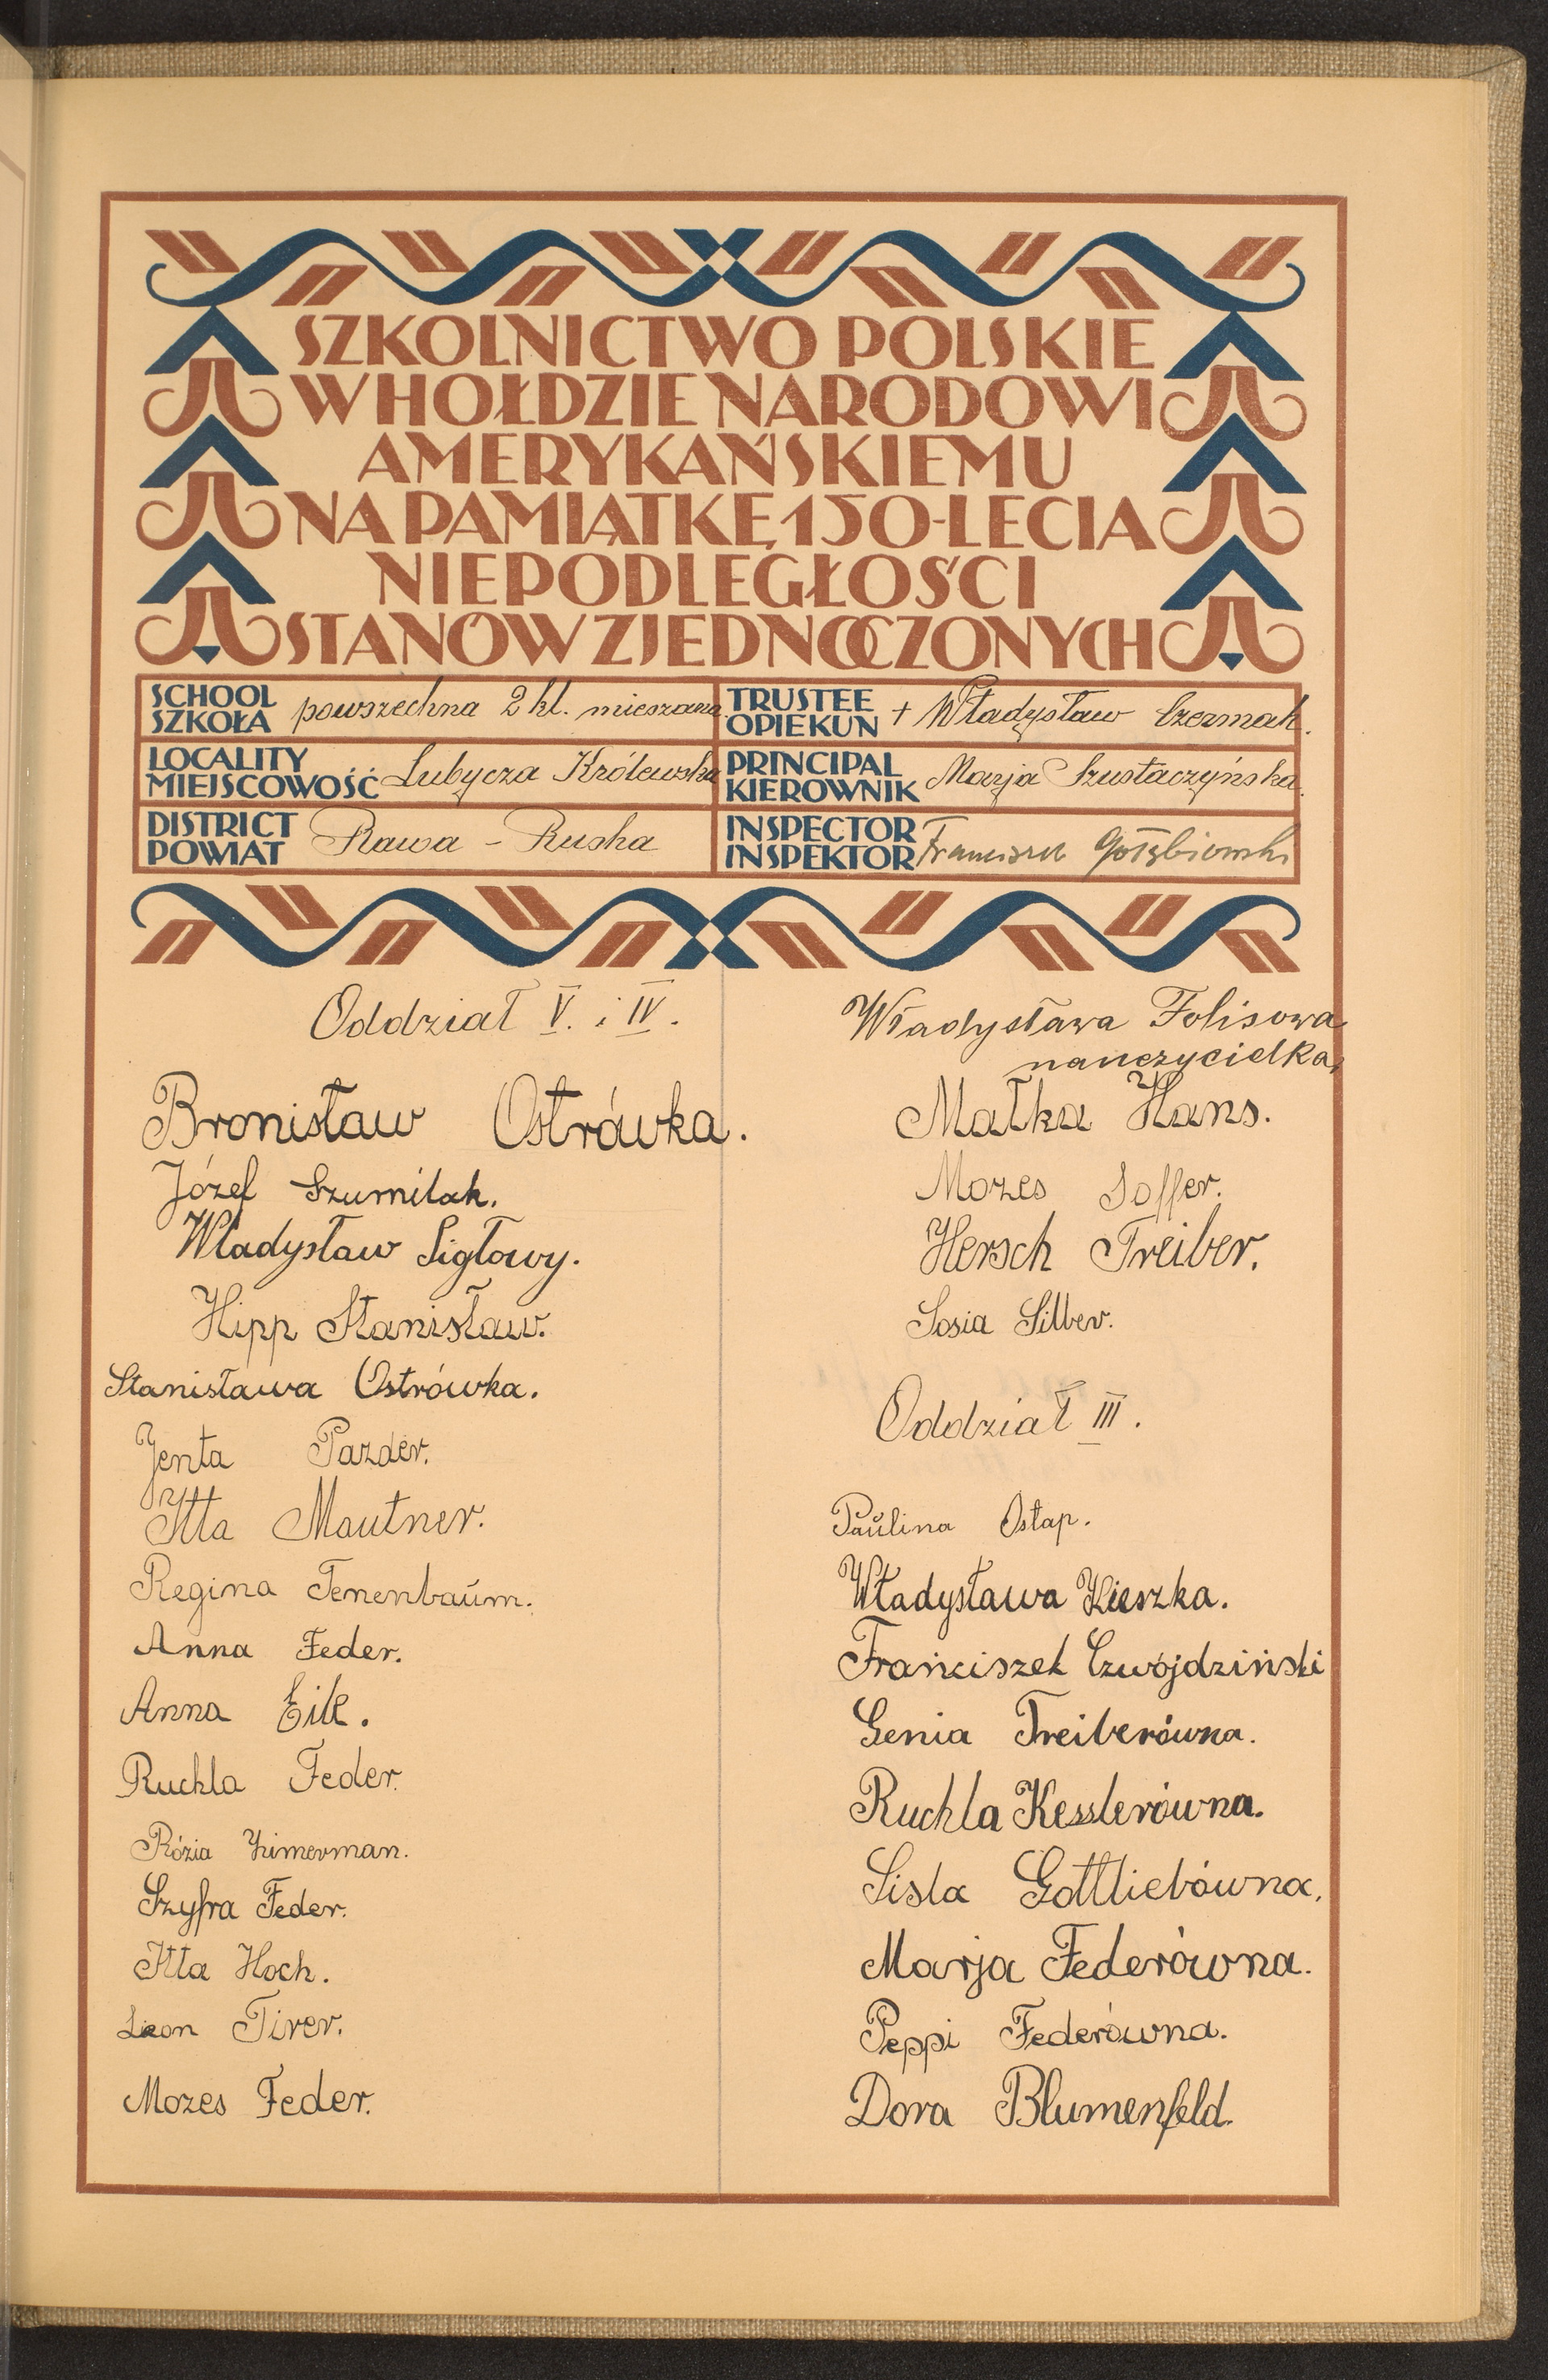 SZKOLNICTWO POLSKIE
W HOŁDZIE NARODOWI
AMERYKAŃSKIEMU
NA PAMIĄTKĘ 150-LECIA
NIEPODLEGŁOŚCI
STANÓW ZJEDNOCZONYCH
SCHOOL
SZKOŁA powszechna 2 kl. mieszana
TRUSTEE
OPIEKUN + Władysław Czermak.
LOCALITY
MIEJSCOWOŚĆ Lubycza Królewska
PRINCIPAL
KIEROWNIK Marja Szustaczyńska.
DISTRICT
POWIAT Rawa - Ruska
INSPECTOR
INSPEKTOR Franciszek Gołębiowski
Oddział V. i IV.
Bronisław Ostrówka.
Józef Szumilak.
Władysław Sigłowy.
Hipp Stanisław.
Stanisława Ostrówka.
Jenta Pazder.
Itta Mautner.
Regina Tenenbaŭm.
Anna Feder.
Anna Eile.
Ruchla Feder.
Rózia Zimerman.
Szyfra Feder.
Itta Hoch.
Leon Tirer.
Mozes Feder.
Władysława Folisowa
nauczycielka,
Małka Hans.
Mozes Soffer.
Hersch Treiber.
Sosia Silber.
Oddział III.
Paŭlina Ostap.
Władysława Kieszka.
Franciszek Czwojdziński
Genia Treiberówna.
Ruchla Kesslerówna.
Sisla Gottliebówna.
Marja Federówna.
Peppi Federówna.
Dora Blumenfeld.